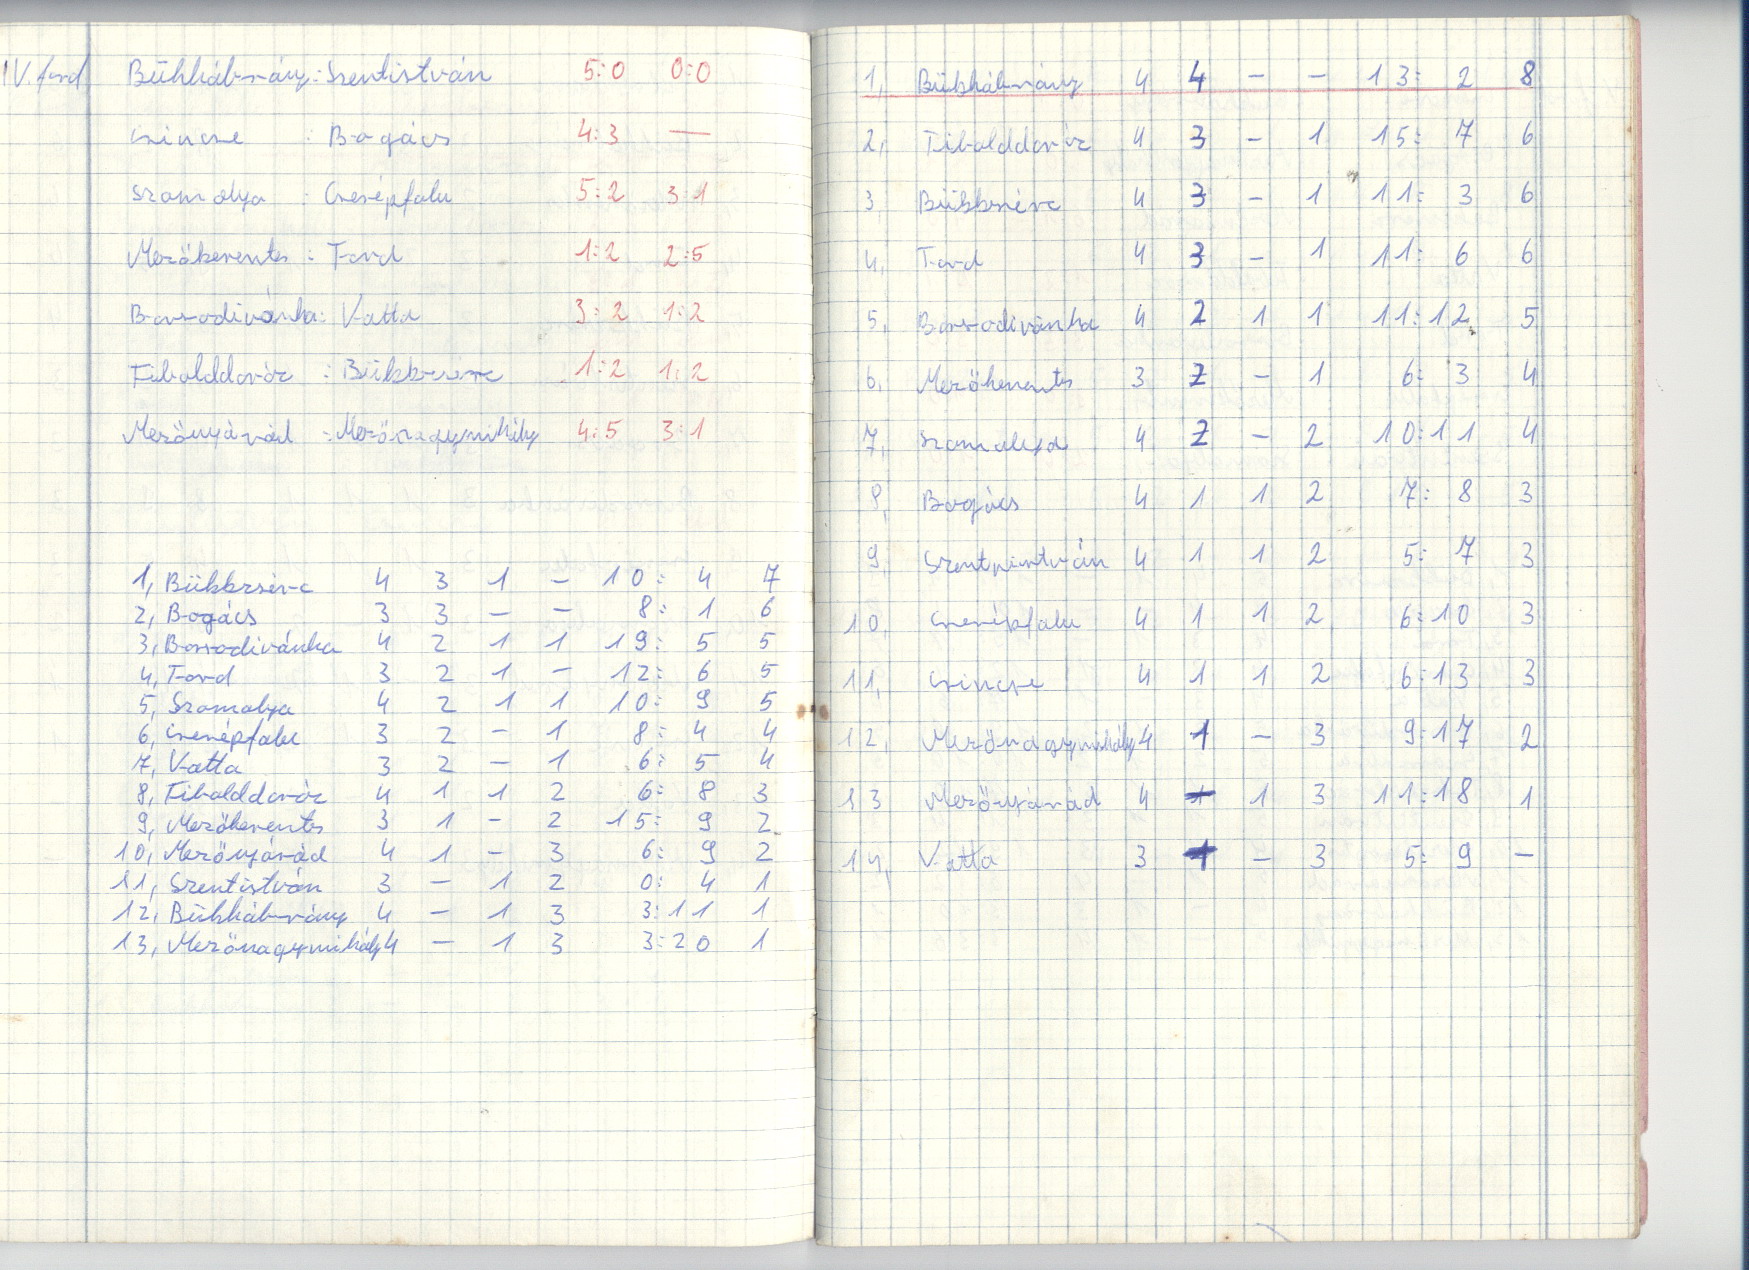 IV. ford Bükkábrány : Szentistván 5:0 0:0
Csincse : Bogács 4:3 —
Szomolya : Cserépfalu 5:2 3:1
Mezőkeresztes : Tard 1:2 2:5
Borsodivánka : Vatta 3:2 1:2
Tibolddaróc : Bükkzsérc 1:2 1:2
Mezőnyárád : Mezőnagymihály 4:5 3:1
1, Bükkzsérc 4 3 1 – 10: 4 7
2, Bogács 3 3 – – 8: 1 6
3, Borsodivánka 4 2 1 1 19: 5 5
4, Tard 3 2 1 – 12: 6 5
5, Szomolya 4 2 1 1 10: 9 5
6, Cserépfalu 3 2 – 1 8: 4 4
7, Vatta 3 2 – 1 6: 5 4
8, Tibolddaróc 4 1 1 2 6: 8 3
9, Mezőkeresztes 3 1 – 2 15: 9 2
10, Mezőnyárád 4 1 – 3 6: 9 2
11, Szentistván 3 – 1 2 0: 4 1
12, Bükkábrány 4 – 1 3 3:11 1
13, Mezőnagymihály 4 – 1 3 3:20 1
1, Bükkábrány 4 4 – – 13: 2 8
2, Tibolddaróc 4 3 – 1 15: 7 6
3, Bükkzsérc 4 3 – 1 11: 3 6
4, Tard 4 3 – 1 11: 6 6
5, Borsodivánka 4 2 1 1 11:12 5
6, Mezőkeresztes 3 2 – 1 6: 3 4
7, Szomolya 4 2 – 2 10:11 4
8, Bogács 4 1 1 2 7: 8 3
9, Szentistván 4 1 1 2 5: 7 3
10, Cserépfalu 4 1 1 2 6:10 3
11, Csincse 4 1 1 2 6:13 3
12, Mezőnagymihály 4 1 – 3 9:17 2
13 Mezőnyárád 4 – 1 3 11:18 1
14, Vatta 3 – – 3 5: 9 –